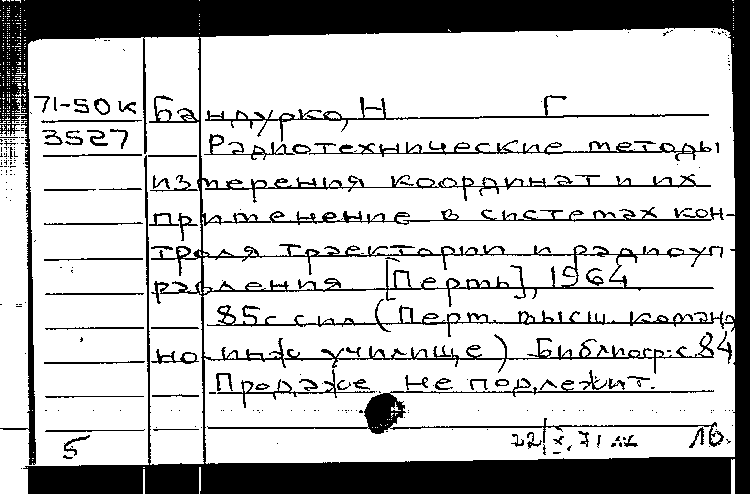 71-50к Бандурко, Н Г
3527 Радиотехнические методы
измерения координат и их
применение в системах кон-
троля траектории и радиоуп-
равления [Пермь], 1964.
85с сил (Перм. высш. команд
но-инж училище) Библиогр.: с 84
Продаже не подлежит.
5 22/X.71 16.